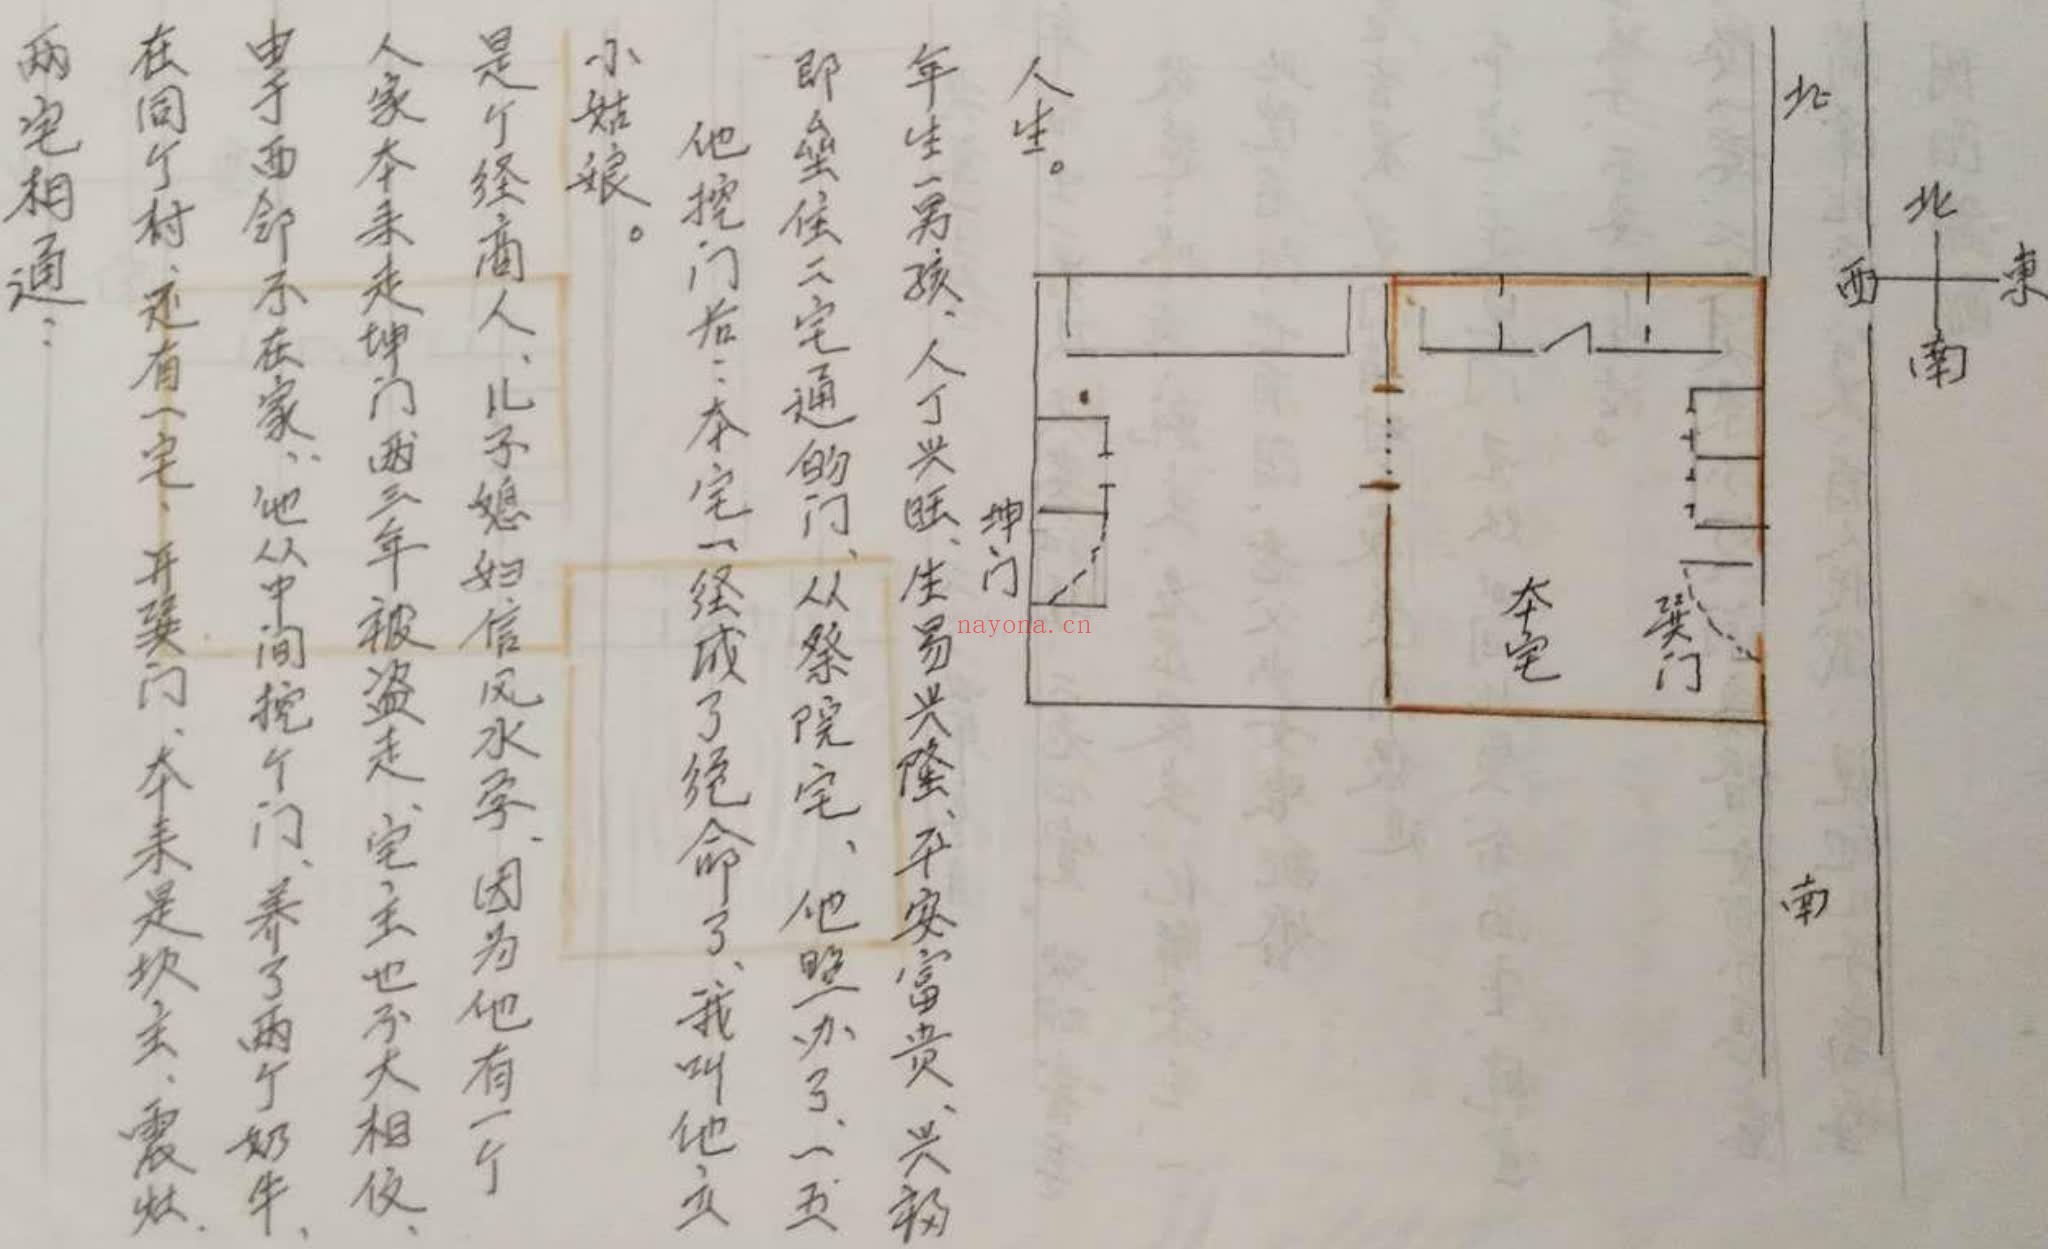 两宅相通：
在同个村、还有一宅、开巽门、本来是坎主、震灶.
由于西邻不在家、他从中间挖个门、养了两个奶牛、
人家本来走坤门两三年被盗走、宅主也不大相信、
是个经商人、儿子媳妇信风水学、因为他有一个
小姑娘。
他挖门后：本宅一经成了绝命了、我叫他立
即垒住二宅通的门、从祭院宅、他照办了、一五
年生一男孩、人丁兴旺、生易兴隆、平安富贵、兴福
人生。
坤门
本宅
巽门
北
南
北
西
東
南
nayona.cn